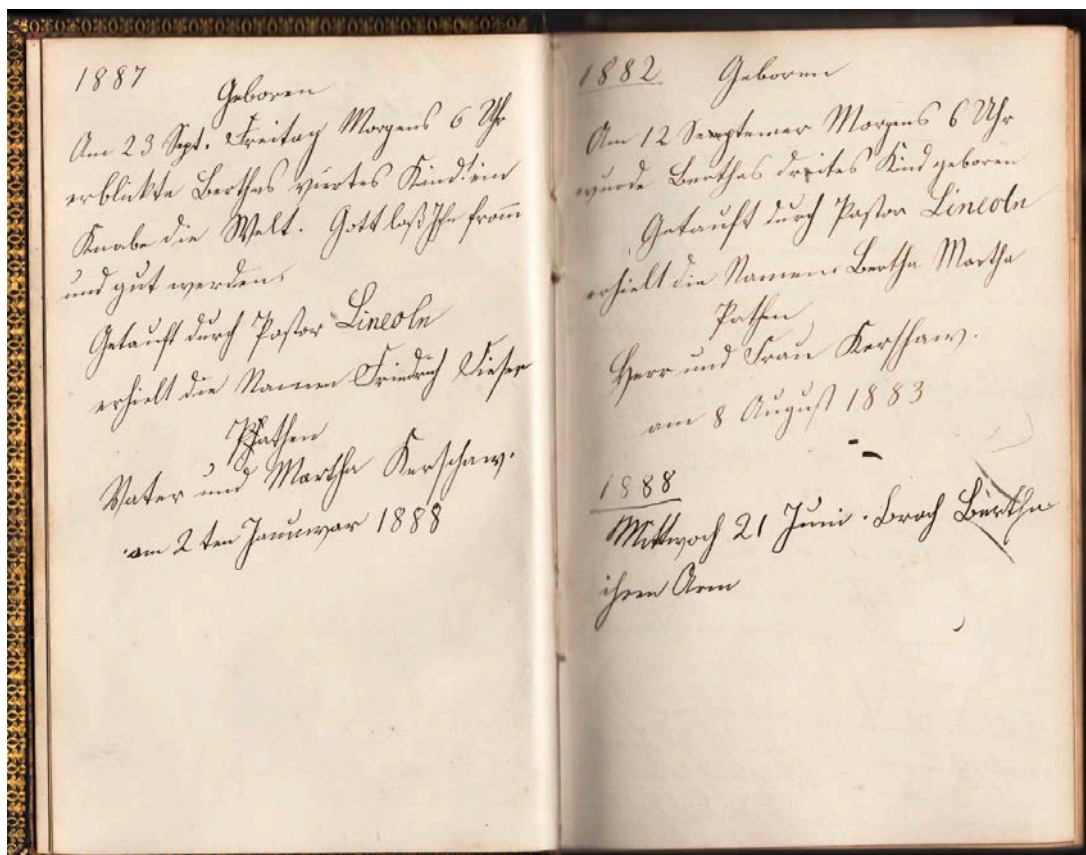 1887
Geboren
Am 23 Sept. Freitag Morgens 6 Uhr
erblickte Berthas viertes Kind! ein
Knabe die Welt. Gott laß Ihn fromm
und gut werden.
Getauft durch Pastor Lincoln
erhielt die Namen Friedrich Dieser
Pathen
Vater und Martha Kerschaw.
am 2 ten Januwar 1888
1882 Geboren
Am 12 Septemer Morgens 6 Uhr
wurde Berthas drites Kind geboren
Getauft durch Pastor Lincoln
erhielt die Namen Bertha Martha
Pathen
Herr und Frau Kerschaw.
am 8 August 1883
1888
Mittwoch 21 Juni. brach Bertha
ihren Arm